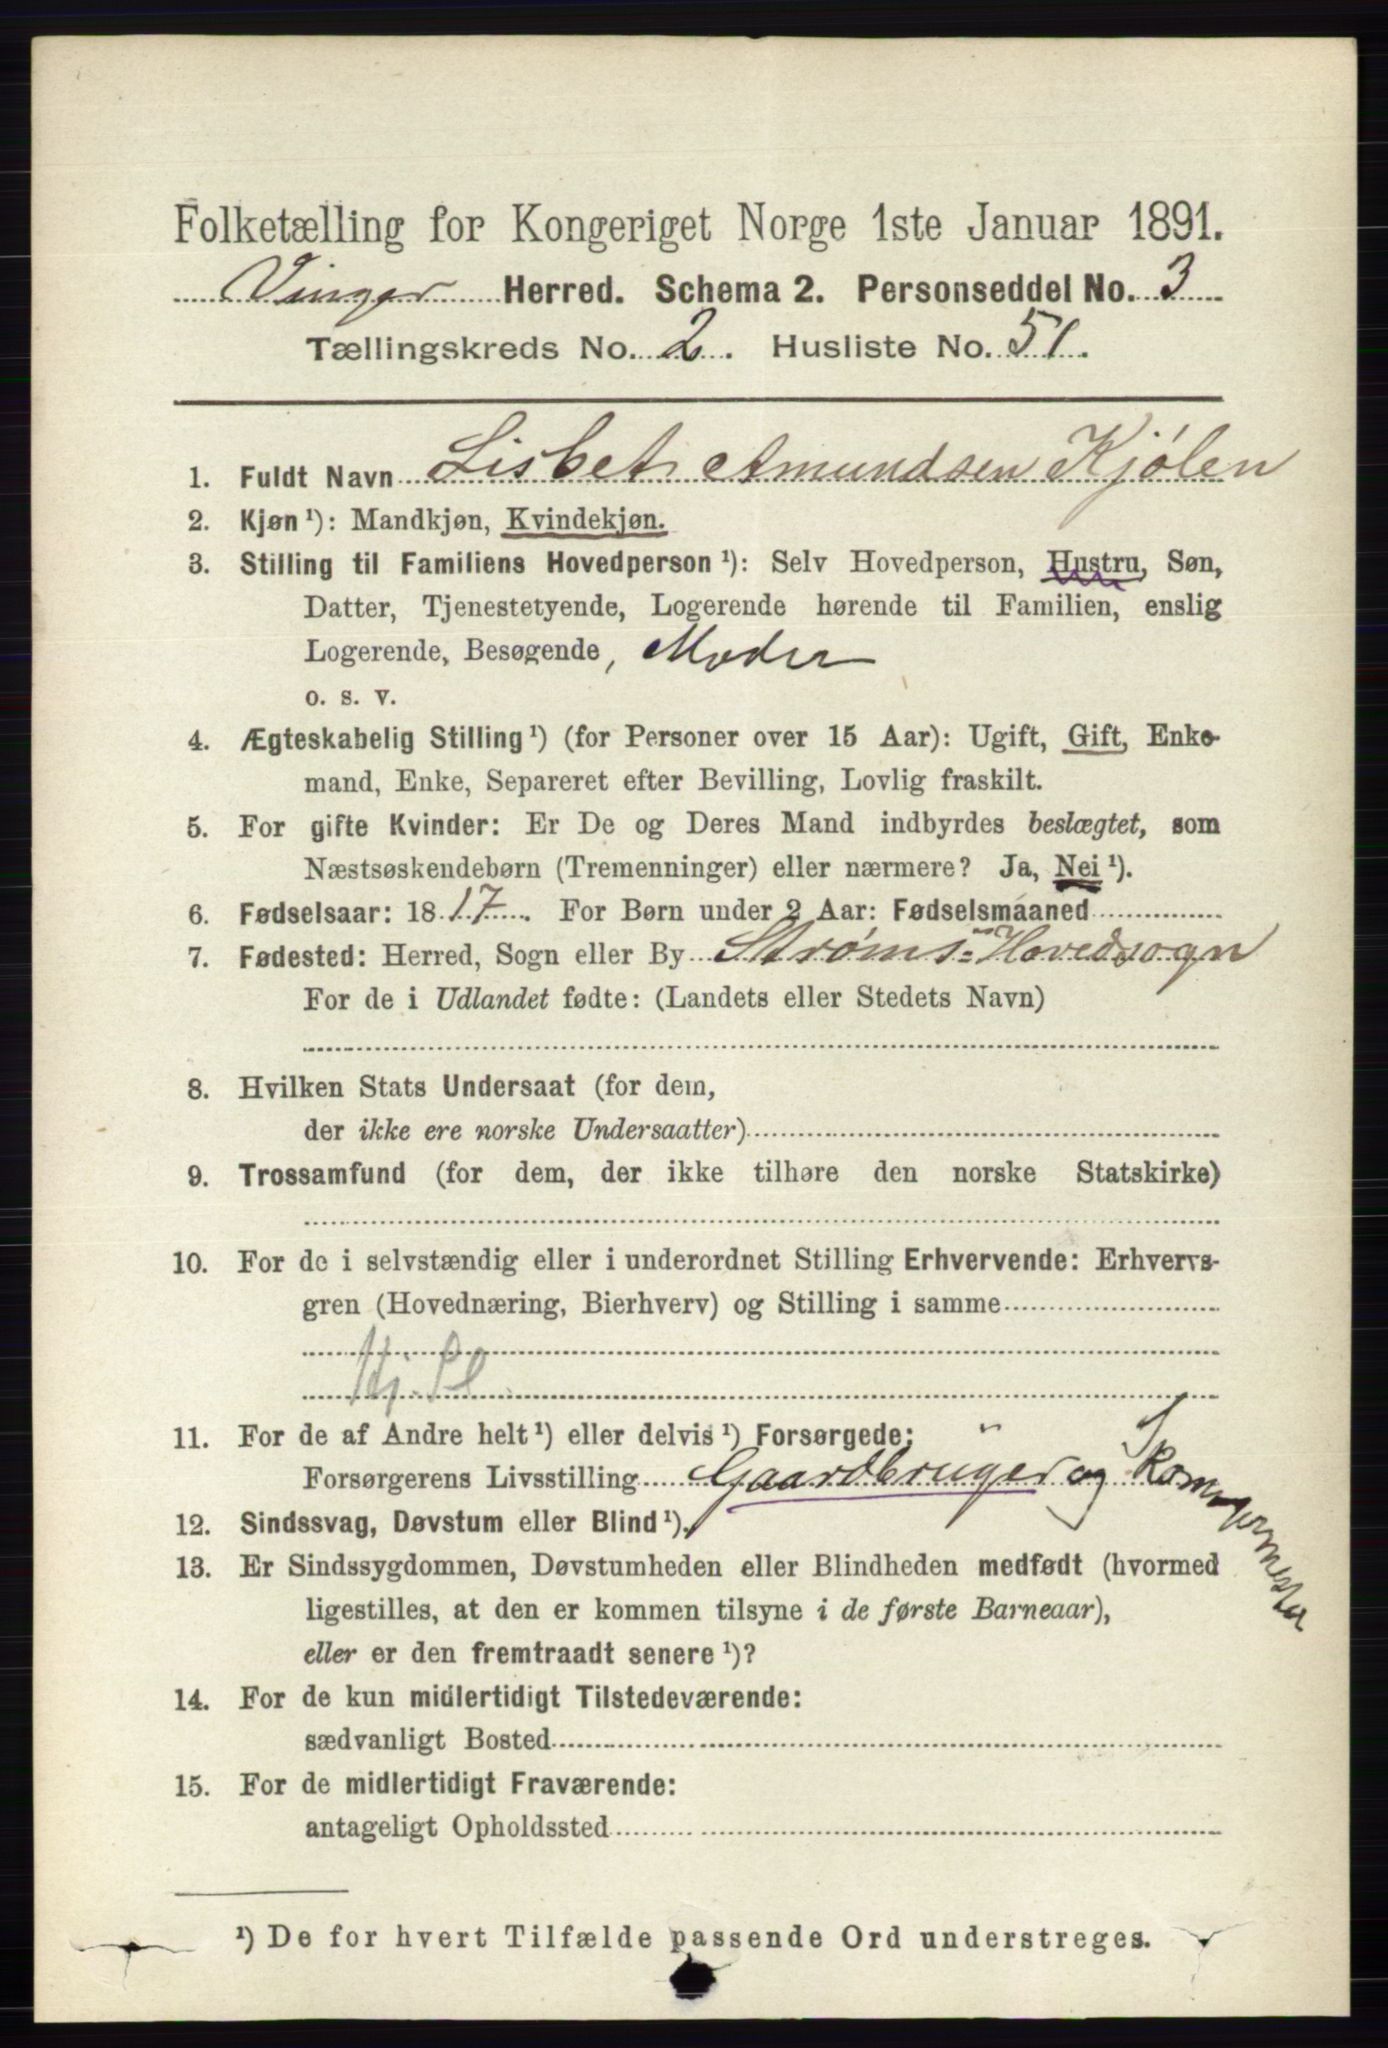 Folketælling for Kongeriget Norge 1ste Januar 1891.
Vinger Herred. Schema 2. Personseddel No. 3
Tællingskreds No. 2. Husliste No. 51.
1. Fuldt Navn Lisbet Amundsen Kjølen
2. Kjøn ¹): Mandkjøn, Kvindekjøn.
3. Stilling til Familiens Hovedperson ¹): Selv Hovedperson, Hustru, Søn,
Datter, Tjenestetyende, Logerende hørende til Familien, enslig
Logerende, Besøgende, Moder
o. s. v.
4. Ægteskabelig Stilling ¹) (for Personer over 15 Aar): Ugift, Gift, Enke-
mand, Enke, Separeret efter Bevilling, Lovlig fraskilt.
5. For gifte Kvinder: Er De og Deres Mand indbyrdes beslægtet, som
Næstsøskendebørn (Tremenninger) eller nærmere? Ja, Nei ¹).
6. Fødselsaar: 1817. For Børn under 2 Aar: Fødselsmaaned
7. Fødested: Herred, Sogn eller By Strøms-Hovedsogn
For de i Udlandet fødte: (Landets eller Stedets Navn)
8. Hvilken Stats Undersaat (for dem,
der ikke ere norske Undersaatter)
9. Trossamfund (for dem, der ikke tilhøre den norske Statskirke)
10. For de i selvstændig eller i underordnet Stilling Erhvervende: Erhvervs-
gren (Hovednæring, Bierhverv) og Stilling i samme
11. For de af Andre helt ¹) eller delvis ¹) Forsørgede:
Forsørgerens Livsstilling Gaardbruger og
12. Sindssvag, Døvstum eller Blind ¹).
13. Er Sindssygdommen, Døvstumheden eller Blindheden medfødt (hvormed
ligestilles, at den er kommen tilsyne i de første Barneaar),
eller er den fremtraadt senere ¹)?
14. For de kun midlertidigt Tilstedeværende:
sædvanligt Bosted
15. For de midlertidigt Fraværende:
antageligt Opholdssted
¹) De for hvert Tilfælde passende Ord understreges.